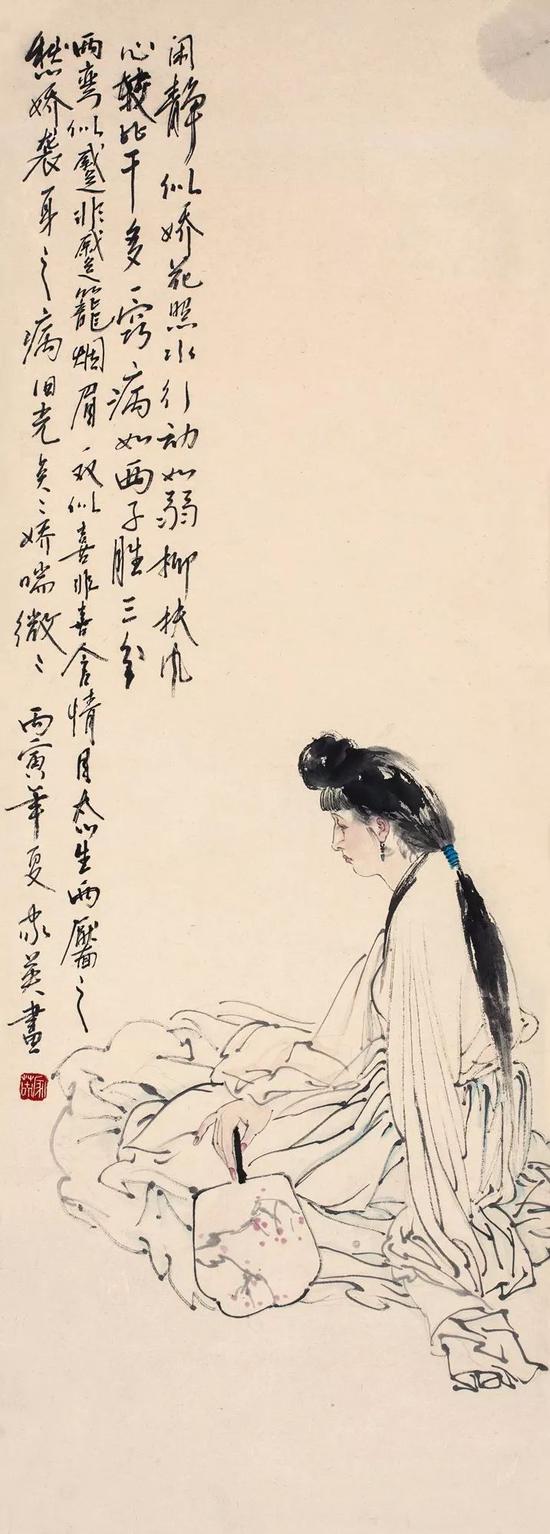 闲静似娇花照水行动如弱柳扶风
心较比干多一窍病如西子胜三分
两弯似蹙非蹙籠烟眉一双似喜非喜含情目态生两靥之
愁娇袭身之病泪光点〻娇喘微〻 丙寅年夏家英畫